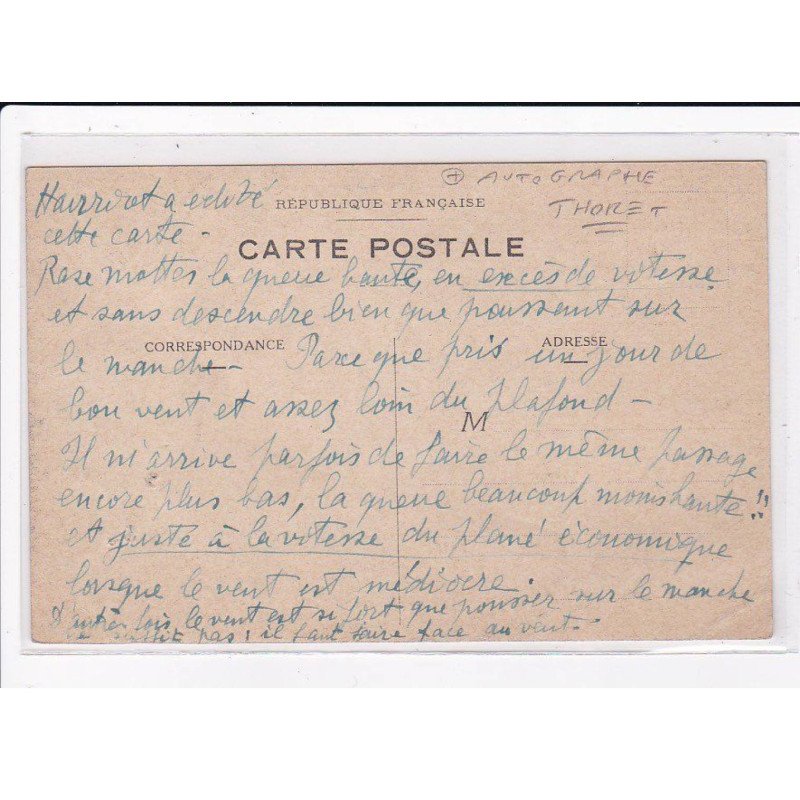 + AUTOGRAPHE
THORET
RÉPUBLIQUE FRANÇAISE
CARTE POSTALE
CORRESPONDANCE
ADRESSE
M
a édité
cette carte -
Rase mottes la queue haute, en excès de vitesse
et sans descendre bien que poussant sur
le manche - Parce que pris un jour de
bon vent et assez loin du plafond -
Il m'arrive parfois de faire le même passage
encore plus bas, la queue beaucoup moins haute !!
et juste à la vitesse du plané économique
lorsque le vent est médiocre.
D'autres fois, le vent est si fort que pousser sur le manche
ne suffit pas ! il faut faire face au vent.